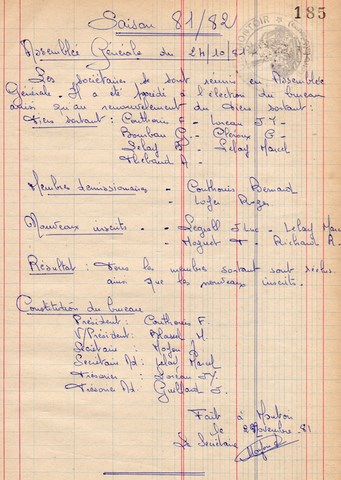 185
Saison 81/82
Assemblée Générale du 24/10/81
Les sociétaires se sont réunis en Assemblée
Générale. Il a été procédé à l'élection du bureau
ainsi qu'au renouvellement du tiers sortant:
Tiers sortant: Couthouis F. - Loreau J Y-
G - G -
Lelay R - Lelay Marcel
Thibaud A -
Membres démissionnaires - Couthouis Bernard
- Roger
Nouveaux inscrits - Legall J Luc - Lelay
- Hoguet T - Richard R.
Résultat : Tous les membres sortant sont réélus
ainsi que les nouveaux inscrits.
Constitution du bureau
Président: Couthouis F.
V/Président: M.
Secrétaire :
Secrétaire Ad: Lelay Marcel
Trésorier : Loreau J Y.
Trésorier Ad: Guillard J.
Fait à
Le Novembre 81
Le Secrétaire